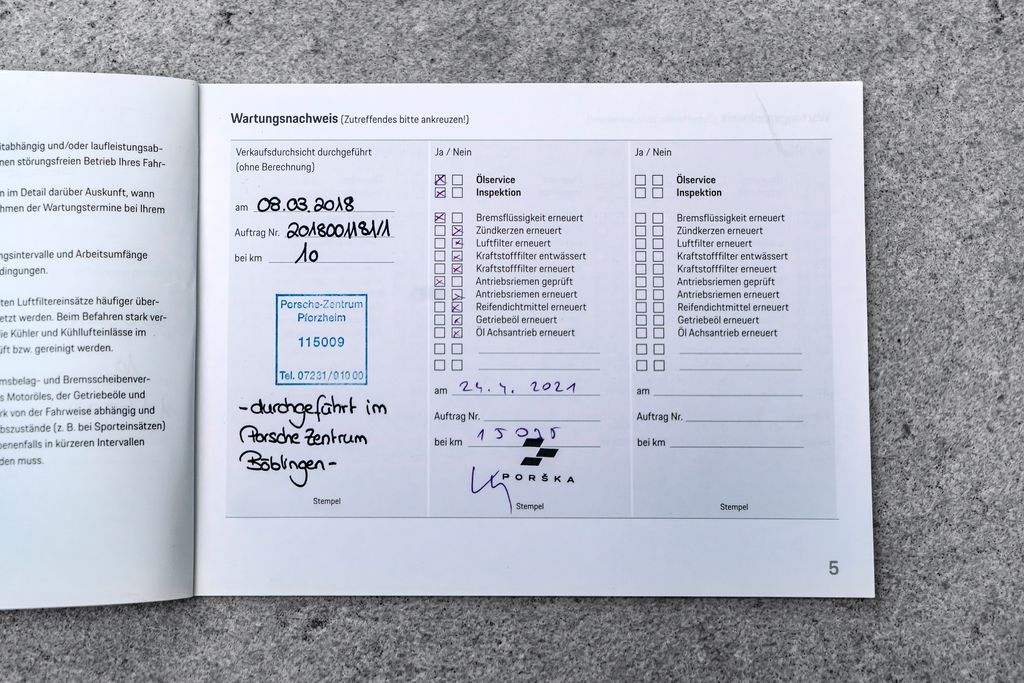 itabhängig und/oder laufleistungsab-
nen störungsfreien Betrieb Ihres Fahr-
n im Detail darüber Auskunft, wann
hmen der Wartungstermine bei Ihrem
ngsintervalle und Arbeitsumfänge
dingungen.
ten Luftfiltereinsätze häufiger über-
etzt werden. Beim Befahren stark ver-
ie Kühler und Kühllufteinlässe im
üft bzw. gereinigt werden.
msbelag- und Bremsscheibenver-
s Motoröles, der Getriebeöle und
rk von der Fahrweise abhängig und
bszustände (z. B. bei Sporteinsätzen)
benenfalls in kürzeren Intervallen
den muss.
Wartungsnachweis (Zutreffendes bitte ankreuzen!)
Verkaufsdurchsicht durchgeführt
(ohne Berechnung)
am 08.03.2018
Auftrag Nr. 2018001181/1
bei km 10
Porsche-Zentrum
Pforzheim
115009
Tel. 07231/91000
-durchgeführt im
Porsche Zentrum
Böblingen-
Stempel
Ja / Nein
Ölservice
Inspektion
Bremsflüssigkeit erneuert
Zündkerzen erneuert
Luftfilter erneuert
Kraftstofffilter entwässert
Kraftstofffilter erneuert
Antriebsriemen geprüft
Antriebsriemen erneuert
Reifendichtmittel erneuert
Getriebeöl erneuert
Öl Achsantrieb erneuert
am 24.4.2021
Auftrag Nr.
bei km 15025
PORŠKA
Stempel
Ja / Nein
Ölservice
Inspektion
Bremsflüssigkeit erneuert
Zündkerzen erneuert
Luftfilter erneuert
Kraftstofffilter entwässert
Kraftstofffilter erneuert
Antriebsriemen geprüft
Antriebsriemen erneuert
Reifendichtmittel erneuert
Getriebeöl erneuert
Öl Achsantrieb erneuert
am
Auftrag Nr.
bei km
Stempel
5